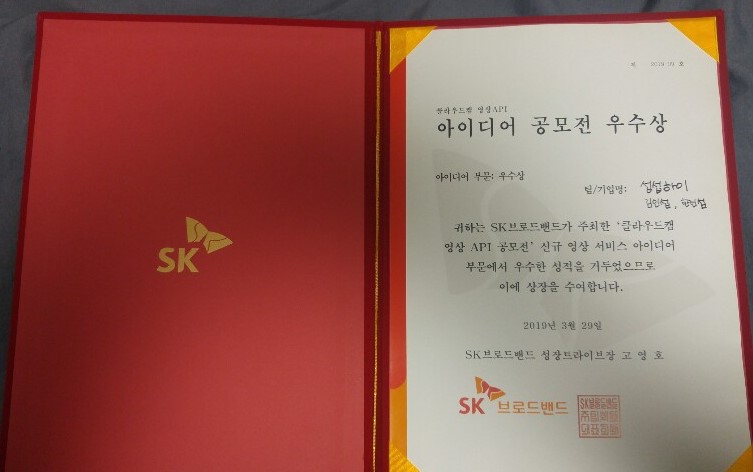 SK
제 2019-09 호
클라우드캠 영상API
아이디어 공모전 우수상
아이디어 부문: 우수상
팀/기업명: 섭섭하이
귀하는 SK브로드밴드가 주최한 '클라우드캠
영상 API 공모전' 신규 영상 서비스 아이디어
부문에서 우수한 성적을 거두었으므로
이에 상장을 수여합니다.
2019년 3월 29일
SK브로드밴드 성장트라이브장 고영호
SK 브로드밴드